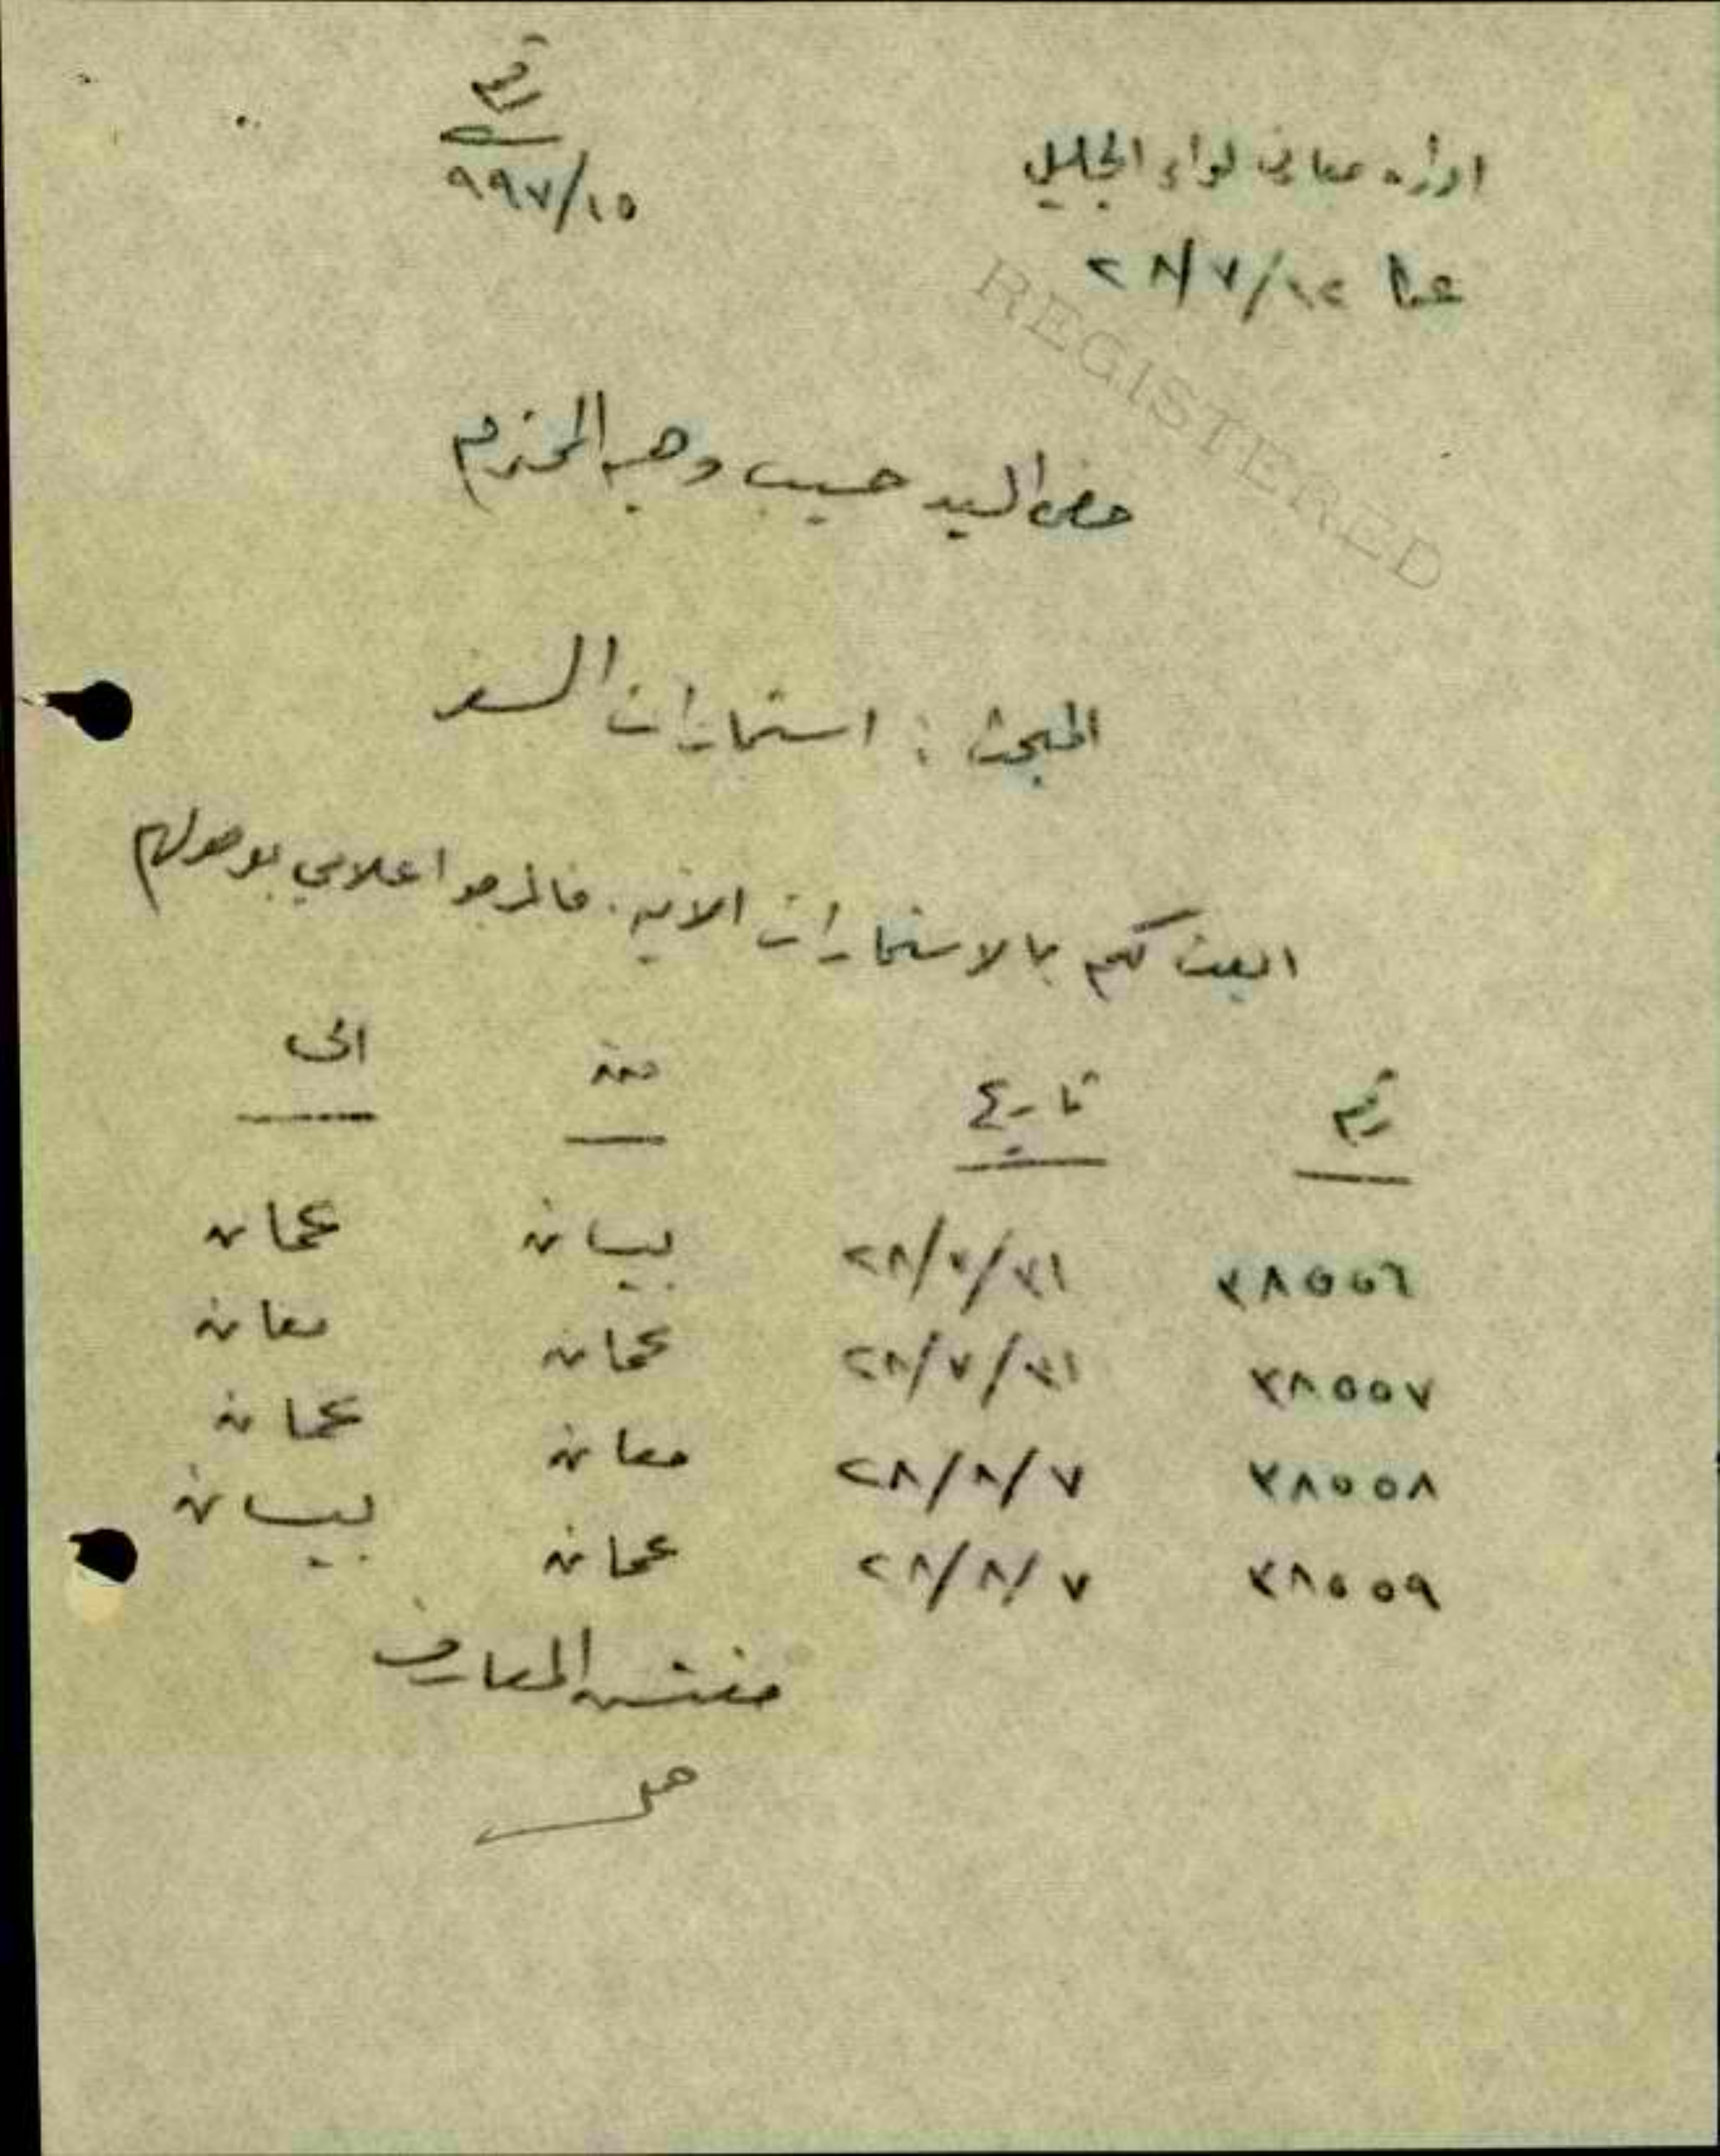 رقم
٩٩٧/١٥
ادارة معارف لواء الجليل
عكا ٢٨/٧/١٢
REGISTERED
حضرة السيد حسيب وهبه المحترم
المبحث : استمارات السفر
ابعث لكم بالاستمارات الاتيه . فالمرجو اعلامي بوصولهم
رقم تاريخ من الى
٣٨٥٥٦ ٢٨/٧/٣١ بيسان عمان
٣٨٥٥٧ ٢٨/٧/٣١ عمان معان
٣٨٥٥٨ ٢٨/٨/٧ معان عمان
٣٨٥٥٩ ٢٨/٨/٧ عمان بيسان
مفتش المعارف